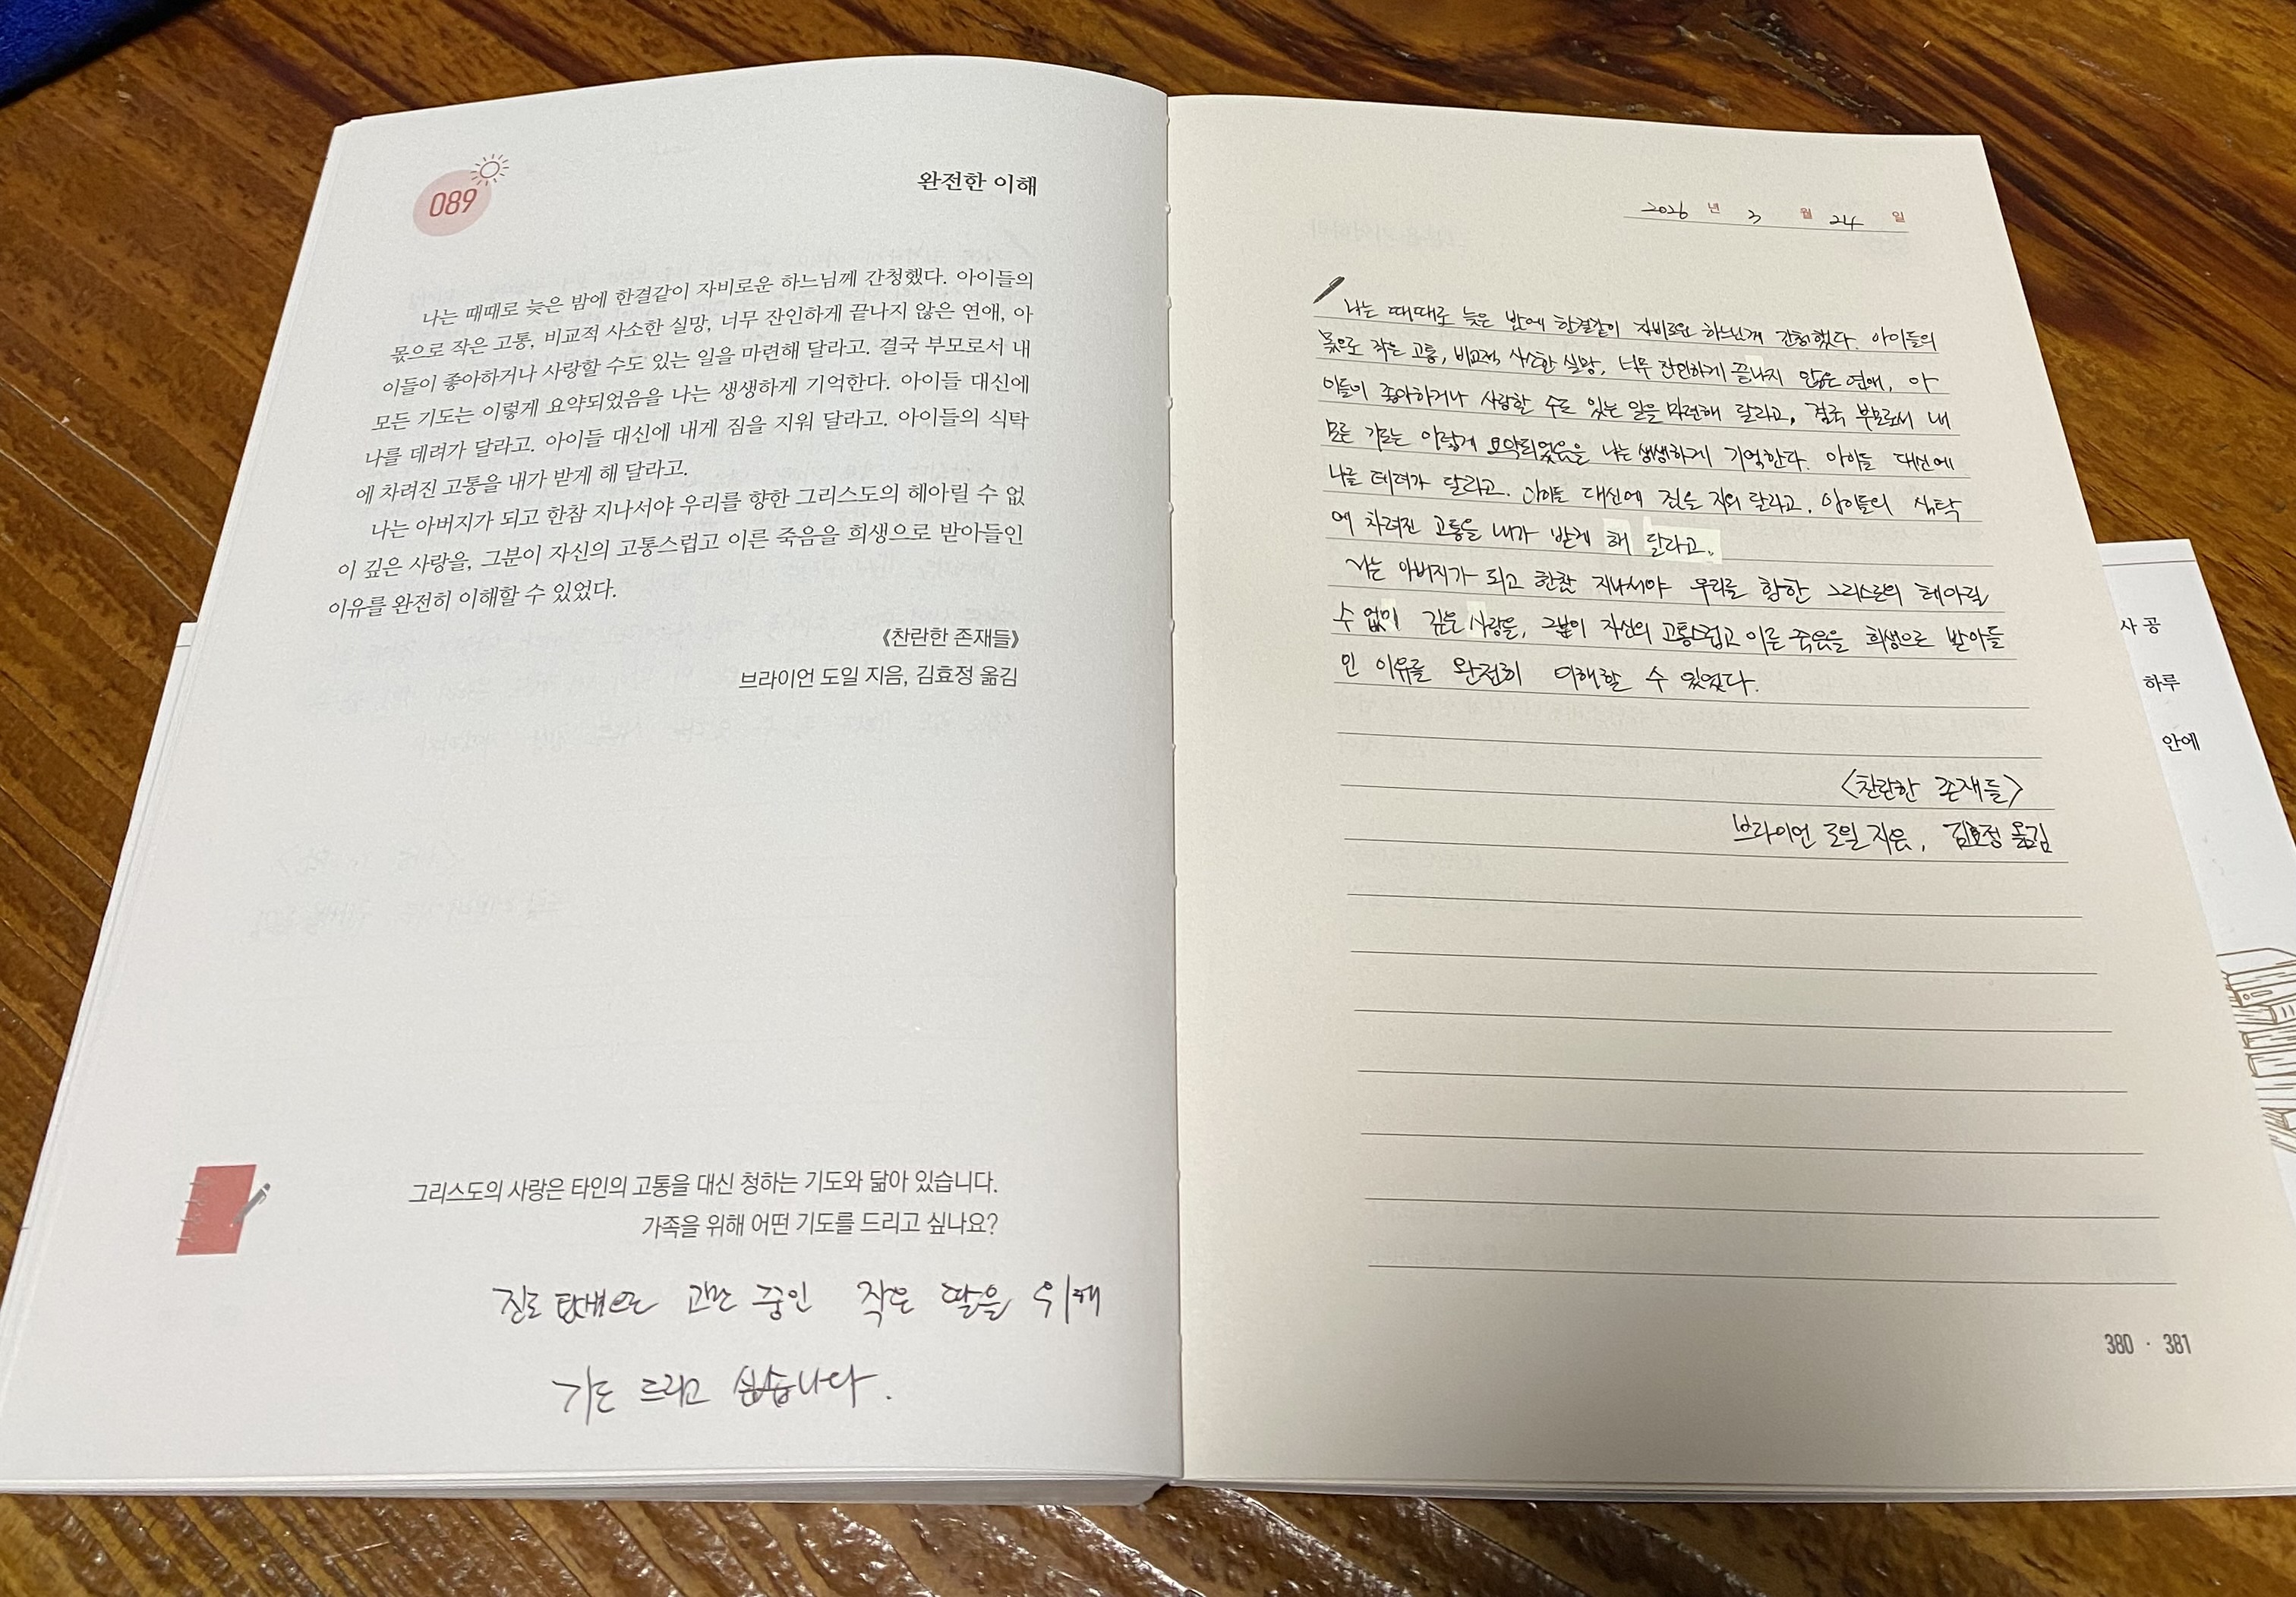 089
완전한 이해
나는 때때로 늦은 밤에 한결같이 자비로운 하느님께 간청했다. 아이들의
몫으로 작은 고통, 비교적 사소한 실망, 너무 잔인하게 끝나지 않은 연애, 아
이들이 좋아하거나 사랑할 수도 있는 일을 마련해 달라고. 결국 부모로서 내
모든 기도는 이렇게 요약되었음을 나는 생생하게 기억한다. 아이들 대신에
나를 데려가 달라고. 아이들 대신에 내게 짐을 지워 달라고. 아이들의 식탁
에 차려진 고통을 내가 받게 해 달라고.
나는 아버지가 되고 한참 지나서야 우리를 향한 그리스도의 헤아릴 수 없
이 깊은 사랑을, 그분이 자신의 고통스럽고 이른 죽음을 희생으로 받아들인
이유를 완전히 이해할 수 있었다.
《찬란한 존재들》
브라이언 도일 지음, 김효정 옮김
그리스도의 사랑은 타인의 고통을 대신 청하는 기도와 닮아 있습니다.
가족을 위해 어떤 기도를 드리고 싶나요?
진로 탐색으로 고민 중인 작은 딸을 위해
기도 드리고 싶습니다.
2026 년 3 월 24 일
나는 때때로 늦은 밤에 한결같이 자비로운 하느님께 간청했다. 아이들의
몫으로 작은 고통, 비교적 사소한 실망, 너무 잔인하게 끝나지 않은 연애, 아
이들이 좋아하거나 사랑할 수도 있는 일을 마련해 달라고, 결국 부모로서 내
모든 기도는 이렇게 요약되었음을 나는 생생하게 기억한다. 아이들 대신에
나를 데려가 달라고. 아이들 대신에 짐을 지워 달라고. 아이들의 식탁
에 차려진 고통을 내가 받게 해 달라고.
나는 아버지가 되고 한참 지나서야 우리를 향한 그리스도의 헤아릴
수 없이 깊은 사랑을, 그분이 자신의 고통스럽고 이른 죽음을 희생으로 받아들
인 이유를 완전히 이해할 수 있었다.
<찬란한 존재들>
브라이언 도일 지음, 김효정 옮김
380 · 381
사공
하루
안에